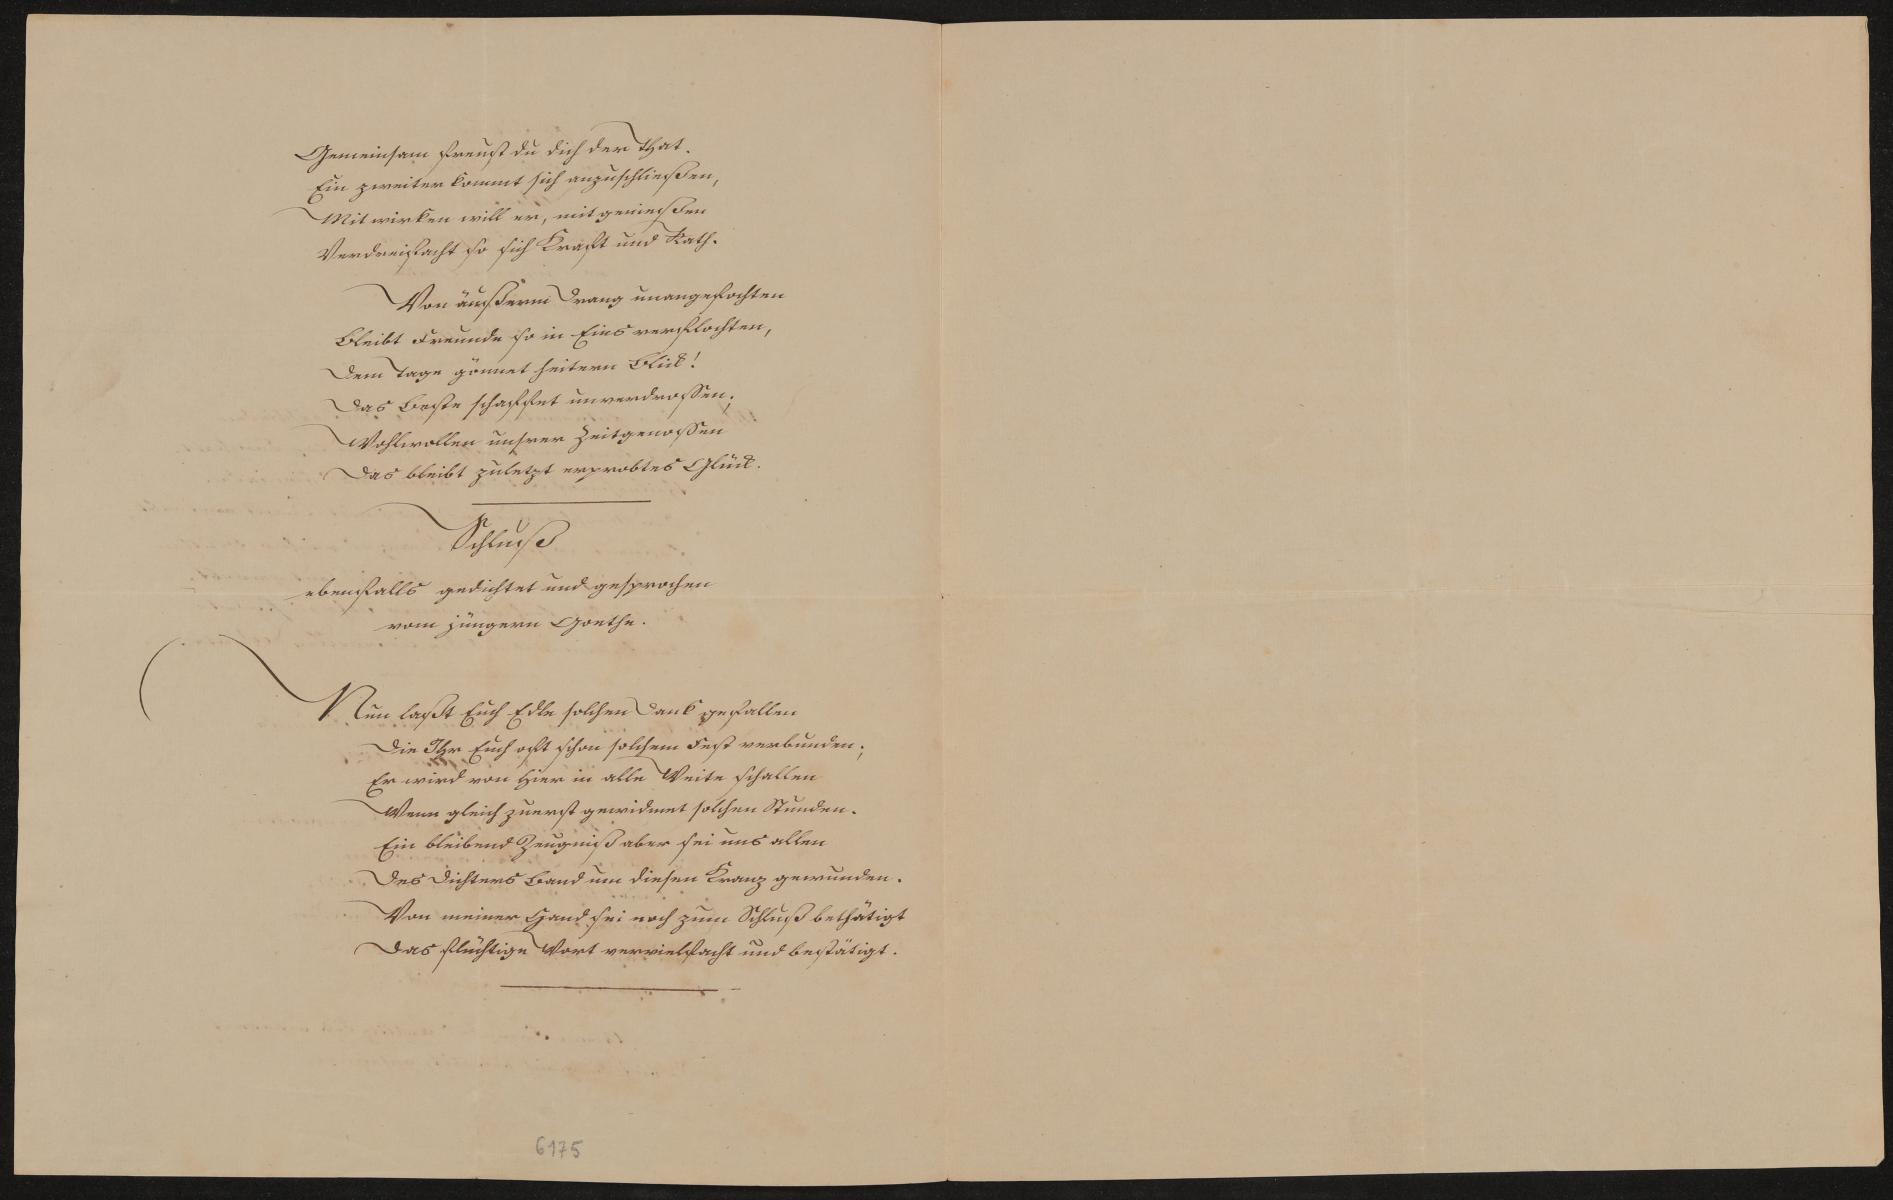 Gemeinsam freust du dich der That.
Ein zweiter kommt sich anzuschließen,
Mitwirken will er, mitgenießen
Verdreifacht so sich Kraft und Rath.
Von äußerm Drang unangefochten
Bleibt Freunde so in Eins verflochten,
Dem Tage gönnet heitern Blick!
Das Beste schaffet unverdrossen;
Wohlwollen unsrer Zeitgenossen
Das bleibt zuletzt erprobtes Glück.
Schluß
ebenfalls gedichtet und gesprochen
vom jüngern Goethe.
Nun laßt Euch Edle solchen Dank gefallen
Die Ihr Euch oft schon solchem Fest verbunden;
Er wird von hier in alle Weite schallen
Wenn gleich zuerst gewidmet solchen Stunden.
Ein bleibend Zeugniß aber sei uns allen
Des Dichters Band um diesen Kranz gewunden.
Von meiner Hand sei noch zum Schluß bethätigt
Das flüchtige Wort vervielfacht und bestätigt.
6175